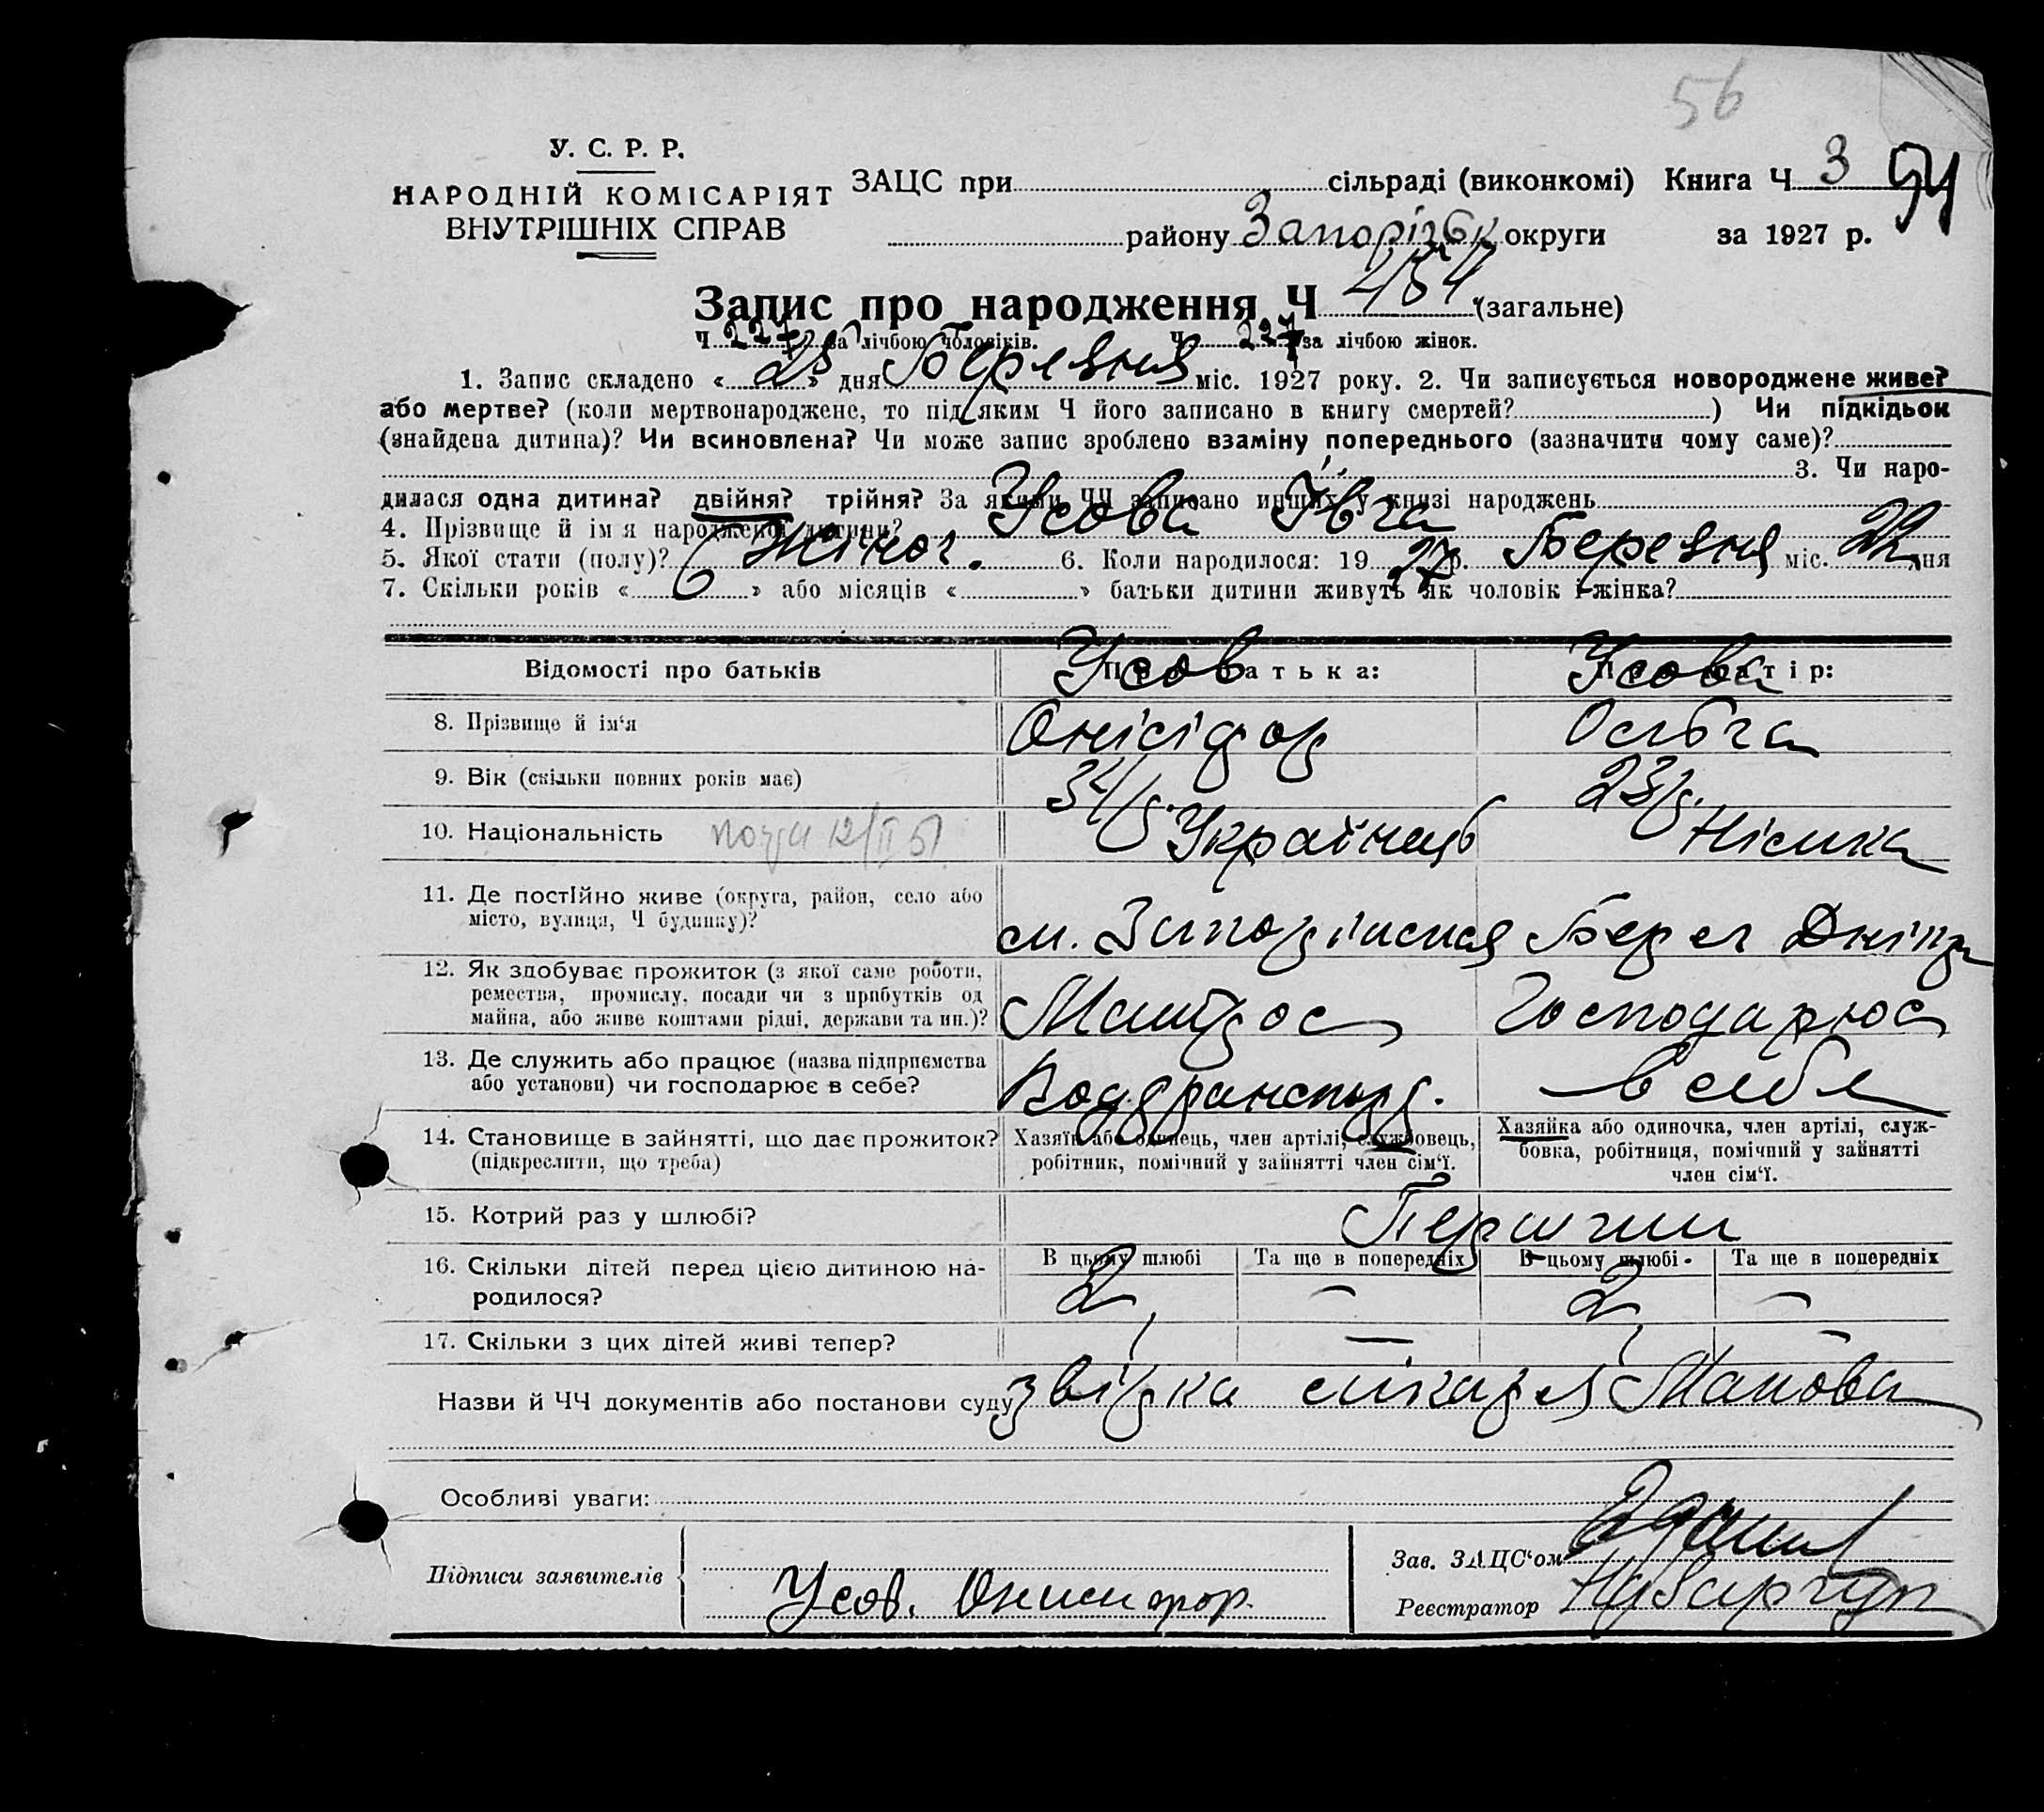 56
У. С. Р. Р.
НАРОДНІЙ КОМІСАРІЯТ
ВНУТРІШНІХ СПРАВ
ЗАЦС при сільраді (виконкомі) Книга Ч 3 94
району Запорізьк округи за 1927 р.
Запис про народження Ч 454 (загальне)
Ч 227 за лічбою чоловіків. Ч 227 за лічбою жінок.
1. Запис складено « 25 » дня Березня міс. 1927 року. 2. Чи записується новороджене живе?
або мертве? (коли мертвонароджене, то під яким Ч його записано в книгу смертей? ) Чи підкідьок
(знайдена дитина)? Чи всиновлена? Чи може запис зроблено взаміну попереднього (зазначити чому саме)?
3. Чи наро-
дилася одна дитина? двійня? трійня? За якими ЧЧ записано инших у книзі народжень
4. Прізвище й ім я народженої дитини? Усова Івга
5. Якої стати (полу)? Жіноч. 6. Коли народилося: 19 27 р. Березня міс. 22 дня
7. Скільки років « 6 » або місяців « » батьки дитини живуть як чоловік і жінка?
Відомості про батьків Про батька: Про матір:
Усов Усова
8. Прізвище й ім‘я Онісіфор Ольга
9. Вік (скільки повних років має) 34/р. 23/р.
10. Національність Українець Німка
11. Де постійно живе (округа, район, село або
місто, вулиця, Ч будинку)? м. Запоріжжя Берег Дніпра
12. Як здобуває прожиток (з якої саме роботи,
ремества, промислу, посади чи з прибутків од
майна, або живе коштами рідні, держави та ин.)? Матрос Господарює
13. Де служить або працює (назва підприємства
або установи) чи господарює в себе? Водтранспорт. в себе
14. Становище в зайнятті, що дає прожиток?
(підкреслити, що треба)
Хазяїн або одинець, член артілі, службовець,
робітник, помічний у зайнятті член сім‘ї.
Хазяйка або одиночка, член артілі, служ-
бовка, робітниця, помічний у зайнятті
член сім‘ї.
15. Котрий раз у шлюбі? Перший
16. Скільки дітей перед цією дитиною на-
родилося?
В цьому шлюбі Та ще в попередніх В цьому шлюбі Та ще в попередніх
2 — 2 —
17. Скільки з цих дітей живі тепер? — —
Назви й ЧЧ документів або постанови суду звірка лікаря
Особливі уваги:
Підписи заявителів Усов. Онисифор.
Зав. ЗАЦС‘ом
Реєстратор